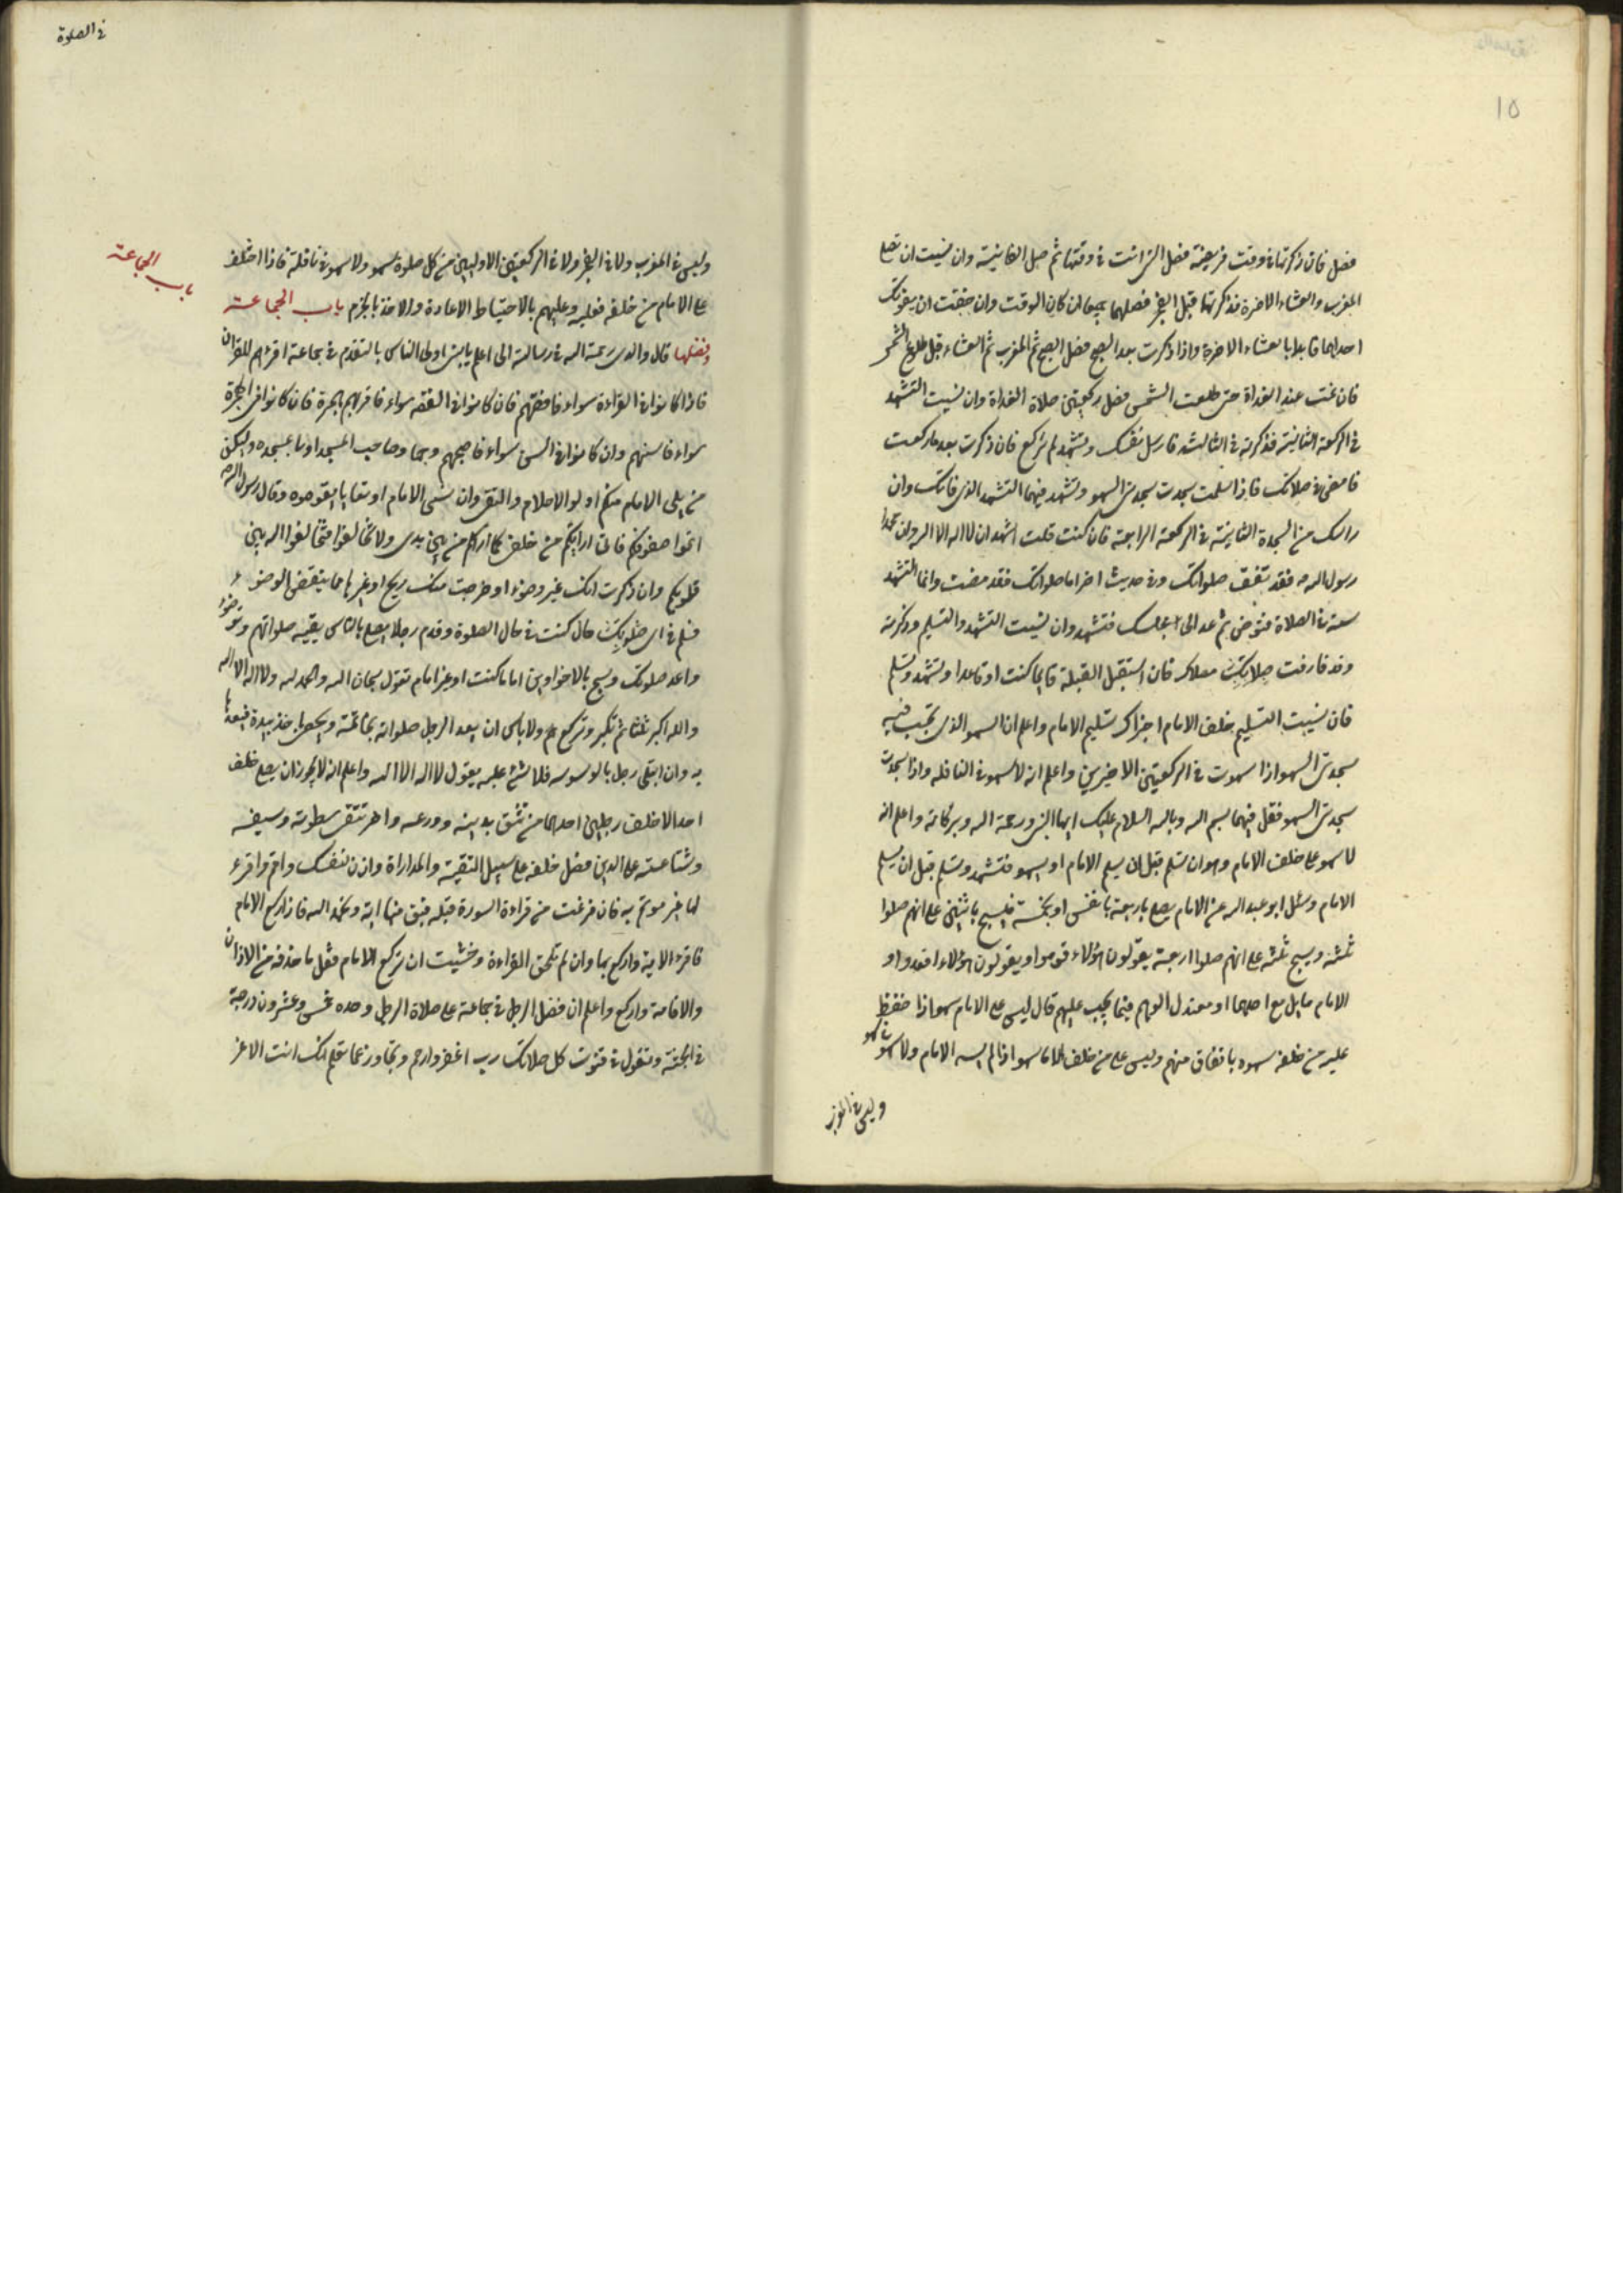 ١٥
فصل فان ذكرتها في وقت فريضة فصل التي انت في وقتها ثم صل الفائتة وان نسيت ان تصلي
المغرب والعشاء الاخرة فذكرتهما قبل الفجر فصلهما جميعا ان كان الوقت وان خفت ان يفوتك
احداهما فابدا بالعشاء الاخرة واذا ذكرت بعد الصبح فصل الصبح ثم المغرب ثم العشاء قبل طلوع الشمس
فان نمت عند الغداة حتى طلعت الشمس فصل ركعتين صلاة الغداة وان نسيت التشهد
في الركعة الثانية فذكرته في الثالثة فارسل نفسك وتشهد لم تركع فان ذكرت بعد ما ركعت
فامض في صلاتك فاذا سلمت سجدت سجدتي السهو وتشهد فيهما التشهد الذي فاتك وان
راسك من السجدة الثانية في الركعة الرابعة فان كنت قلت اشهد ان لا اله الا الله وان محمدا
رسول الله فقد صلواتك وفي حديث اخر اما صلواتك فقد مضت وانما التشهد
سنة في الصلاة فتوض ثم عد الى مجلسك فتشهد وان نسيت التشهد والتسليم وذكرته
وقد فارقت صلاتك فان استقبل القبلة قايما كنت او قاعدا وتشهد وتسلم
فان نسيت التسليم خلف الامام اجزاك تسليم الامام واعلم ان السهو الذي تجب فيه
سجدتي السهو اذا سهوت في الركعتين الاخيرين واعلم انه لا سهو في النافلة واذا سجدت
سجدتي السهو فقل فيهما بسم الله وبالله السلام عليك ايها النبي ورحمة الله وبركاته واعلم انه
لا سهو على خلف الامام وهو ان تسلم قبل ان يسلم الامام او يسهو فتشهد وتسلم قبل ان يسلم
الامام وسئل ابو عبد الله عن الامام يصلي باربعة بانفس او بخمسة فيسبح باثنين على انهم صلوا
ثلثة ويسبح ثلثة على انهم صلوا اربعة يقولون هؤلاء قوموا ويقولون هؤلاء اقعدوا و
الامام مايل مع احدهما او معتدل الوهم فيما يجب عليهم قال ليس على الامام سهو اذا حفظ
عليه من خلفه سهوه باتفاق منهم وليس على من خلف الاما سهو اذا لم يسه الامام ولا سهو في سهو
وليس في المغرب
في الصلوة
وليس في المغرب ولا في الفجر ولا في الركعتين الاوليين من كل صلوة سهو ولا سهو في نافلة فاذا اختلف
على الامام من خلفه فعليه وعليهم بالاحتياط الاعادة والاخذ بالجزم باب الجماعة
باب الجماعة
وفضلها قال والدي رحمة الله في رسالته الي اعلم يا بني اولى الناس بالتقدم في جماعة اقرءهم للقران
فاذا كانوا في القراءة سواء فافقههم فان كانوا في الفقه سواء فاقربهم هجرة فان كانوا في الهجرة
سواء فاسنهم وان كانوا في السن سواء فاصبحهم وجها وصاحب المسجد اولى بمسجده وليكن
من يلي الامام منكم اولو الاحلام والتقى وان نسى الامام او تعايا يقوموه وقال رسول الله
اتموا صفوفكم فاني اراكم من خلفي كما اراكم من بين يدي ولا تخالفوا فتخالف الله بين
قلوبكم وان ذكرت انك غير وضوء او خرجت منك ريح او غيرها مما ينقض الوضوء
فسلم في اي حال كنت في حال الصلوة وقدم رجلا يصلي بالناس بقية صلواتهم وتوضؤ
واعد صلوتك وسبح بالاخراوين اماما كنت او غير امام تقول سبحان الله والحمد لله ولا اله الا الله
والله اكبر ثلثا ثم تكبر وتركع ولا باس ان يعد الرجل صلواته بخاتمة وبحصى ياخذ بيده فيعدها
به وان ابتلى رجل بالوسوسه فلا شئ عليه يقول لا اله الا الله واعلم انه لا يجوز ان يصلي خلف
احد الا خلف رجلين احدهما من تثق بدينه وورعه واخر تتقي سطوته وسيفه
وشناعته على الدين فصل خلفه على سبيل التقية والمداراة واذن لنفسك واقم واقرء
لها غير موتم به فان فرغت من قراءة السورة قبله فبق منها اية وتحمد الله فاذا ركع الامام
فاقرء الاية واركع بها وان لم تلحق القراءة وخشيت ان يركع الامام فقل ما حذفه من الاذان
والاقامة واركع واعلم ان فضل الرجل في جماعة على صلاة الرجل وحده خمس وعشرون درجة
في الجنة وتقول في قنوت كل صلاتك رب اغفر وارحم وتجاوز عما تعلم انك انت الاعز